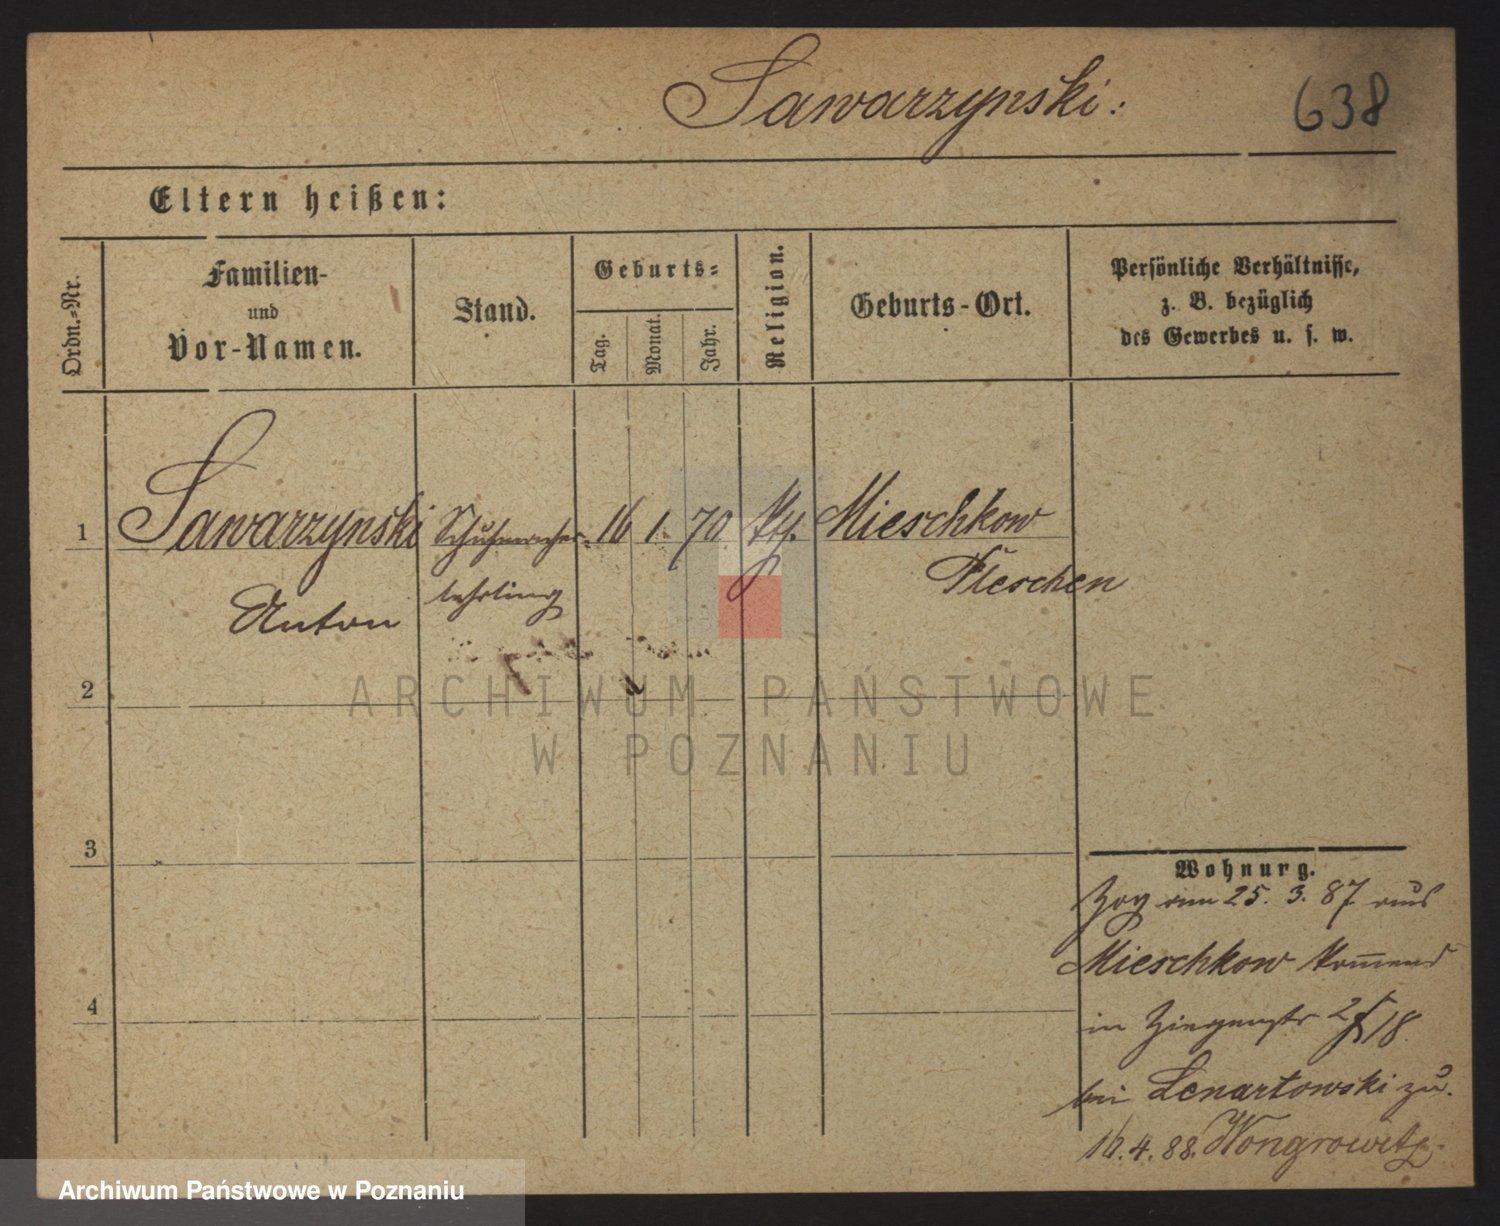 Sawarzynski:
638
Eltern heißen:
Ordn.=Nr.
Familien-
und
Vor-Namen.
Stand.
Geburts=
Tag.
Monat.
Jahr.
Religion.
Geburts-Ort.
Persönliche Verhältnisse,
z. B. bezüglich
des Gewerbes u. s. w.
1 Sawarzynski Schuhmacher= 16 1. 70 ktg. Mieschkow
Anton lehrling Pleschen
2
3
4
Wohnung.
Zog am 25. 3. 87 aus
Mieschkow kommend
in Ziegenstr 18.
bei Lenartowski zu.
16.4.88. Wongrowitz.
ARCHIWUM PAŃSTWOWE
W POZNANIU
Archiwum Państwowe w Poznaniu